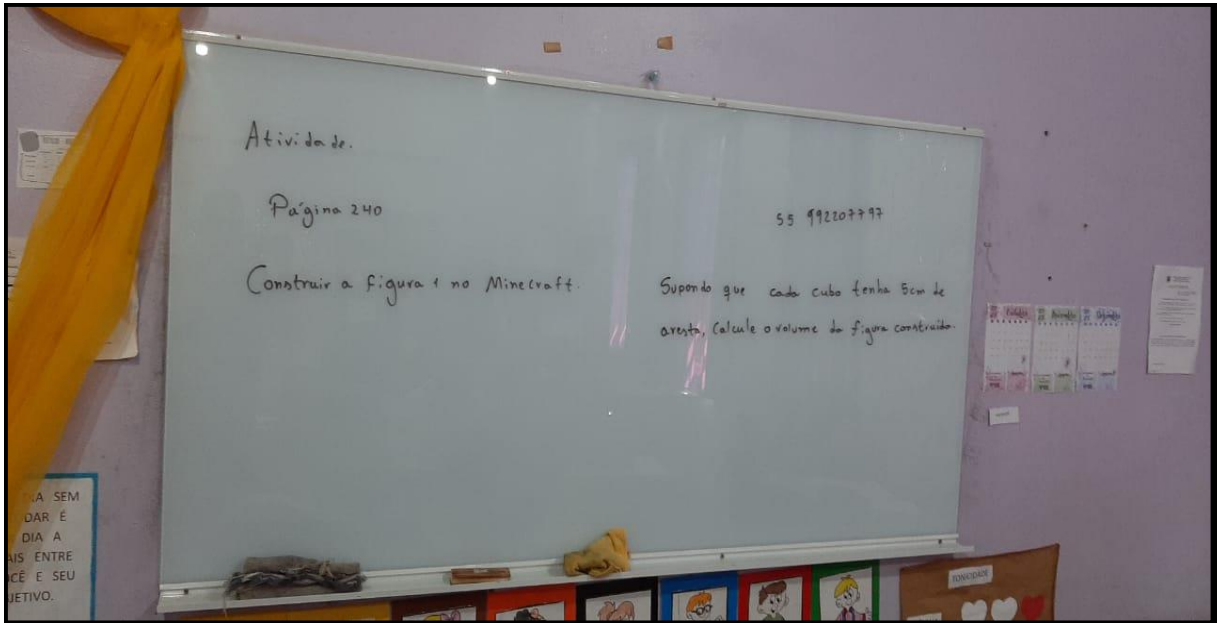 Atividade.
Página 240
Construir a figura 1 no Minecraft.
55 992207797
Supondo que cada cubo tenha 5cm de
aresta, calcule o volume da figura construída.
SEM
DAR É
DIA A
AIS ENTRE
CÊ E SEU
JETIVO.
TONICIDADE